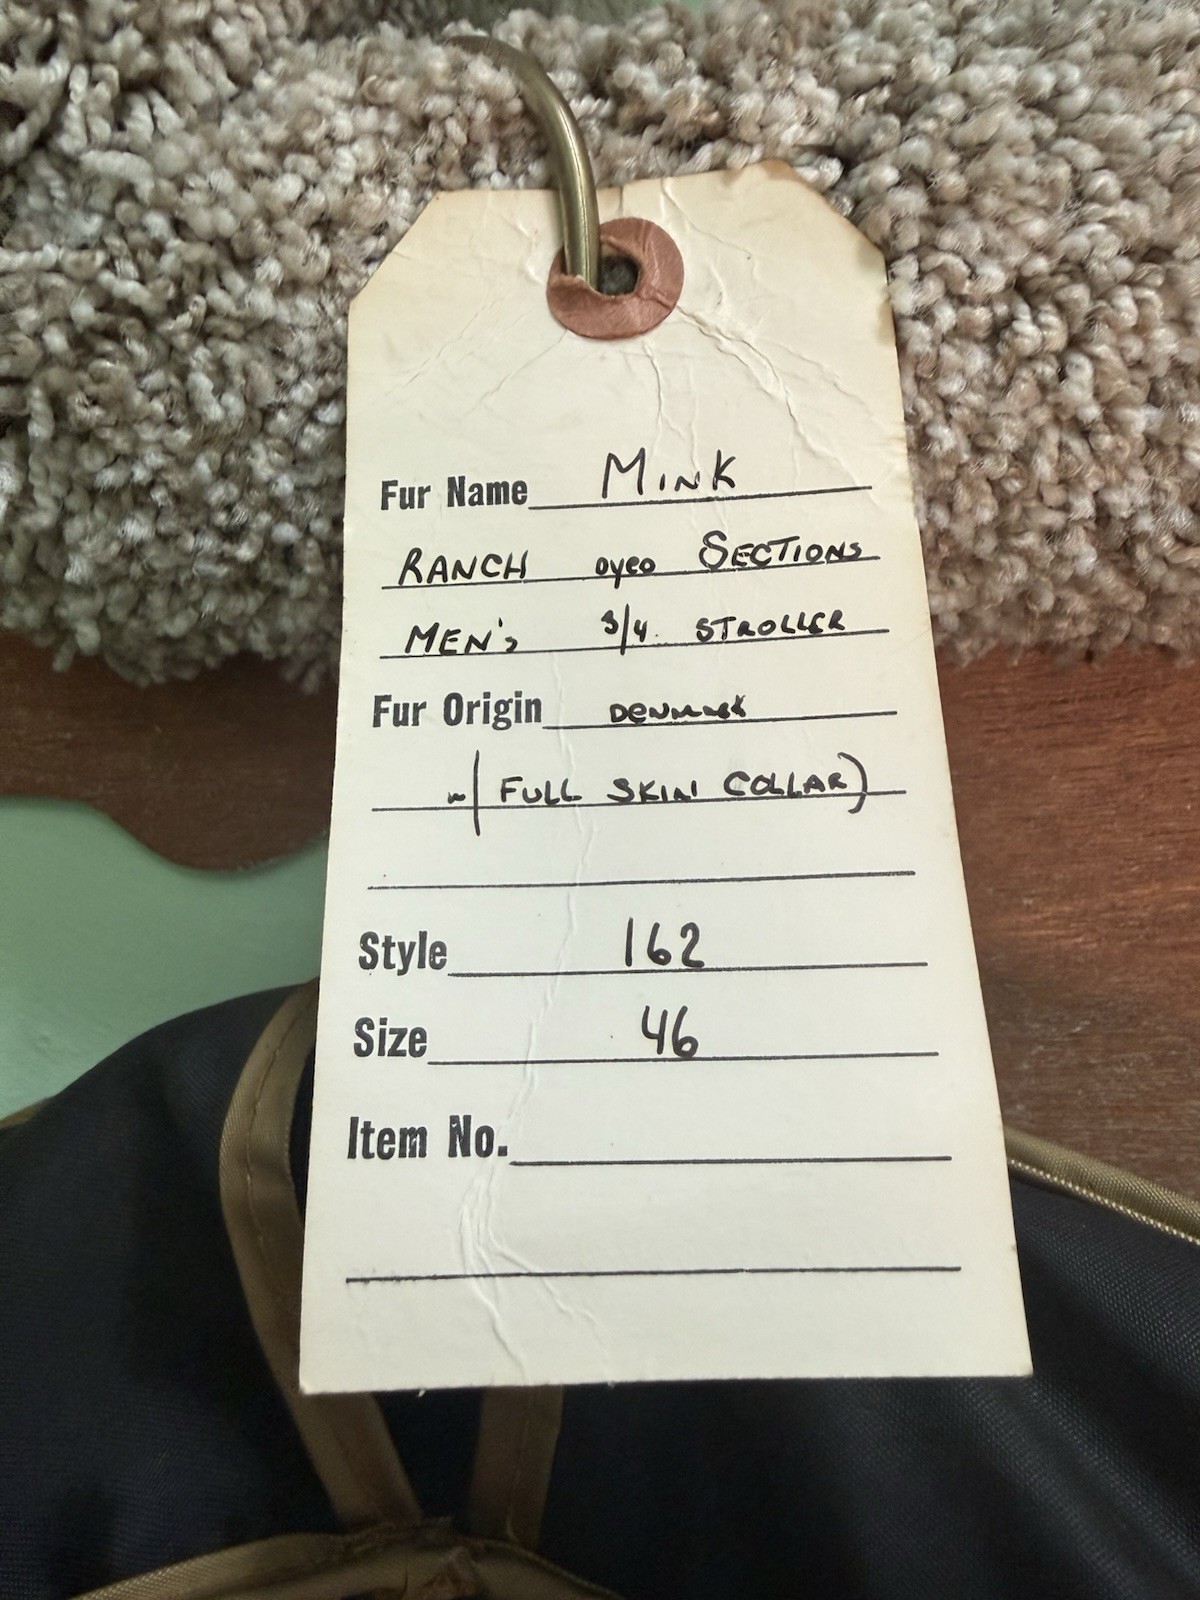 Fur Name MINK
RANCH DYED SECTIONS
MEN'S 3/4 STROLLER
Fur Origin DENMARK
w/ FULL SKIN COLLAR)
Style 162
Size 46
Item No.